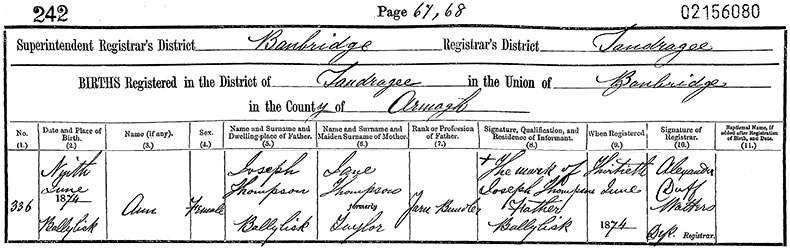 242 Page 67, 68 02156080
Superintendent Registrar's District Banbridge Registrar's District Tandragee
BIRTHS Registered in the District of Tandragee in the Union of Banbridge
in the County of Armagh
No. Date and Place of Birth. Name (if any). Sex. Name and Surname and Dwelling-place of Father. Name and Surname and Maiden Surname of Mother. Rank or Profession of Father. Signature, Qualification, and Residence of Informant. When Registered Signature of Registrar. Baptismal Name, if added after Registration of Birth, and Date.
(1.) (2.) (3.) (4.) (5.) (6.) (7.) (8.) (9.) (10.) (11.)
336 Ninth June 1874 Ballylisk Ann Female Joseph Thompson Ballylisk Jane Thompson formerly Taylor Farm + The mark of Joseph Thompson Father Ballylisk Thirtieth June 1874 Alexander Duff Walters Registrar.